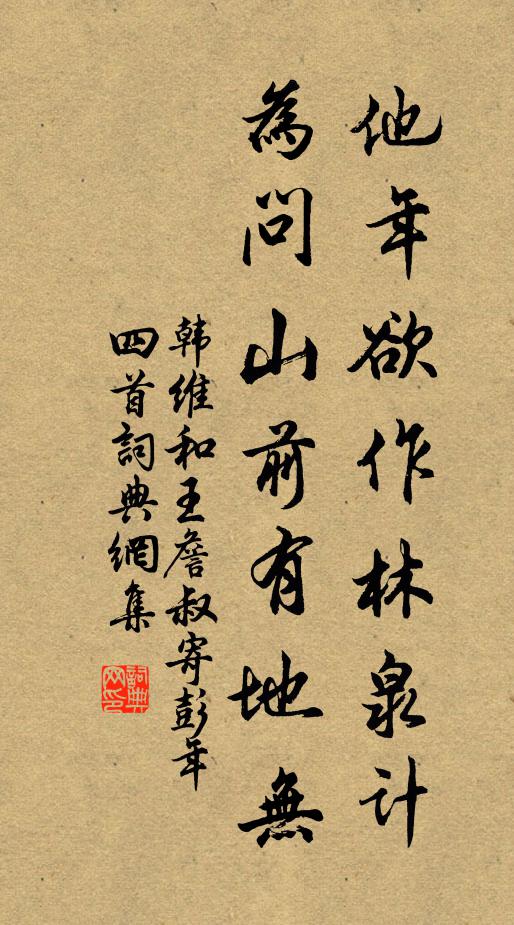 他年欲作林泉計
為問山前有地無
韩維和王詹叔寄彭年
四首詞典網集
詞典网印